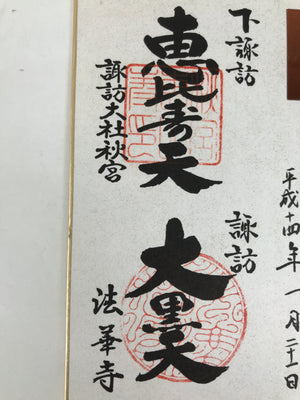 平成十四年一月二十一日
下諏訪
恵比寿天
諏訪大社秋宮
諏訪
大黒天
法華寺